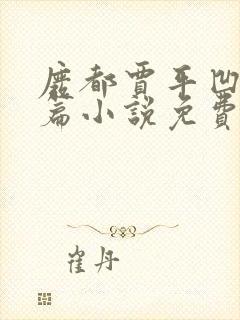 廢都賈平凹
篇小說免費
崔丹